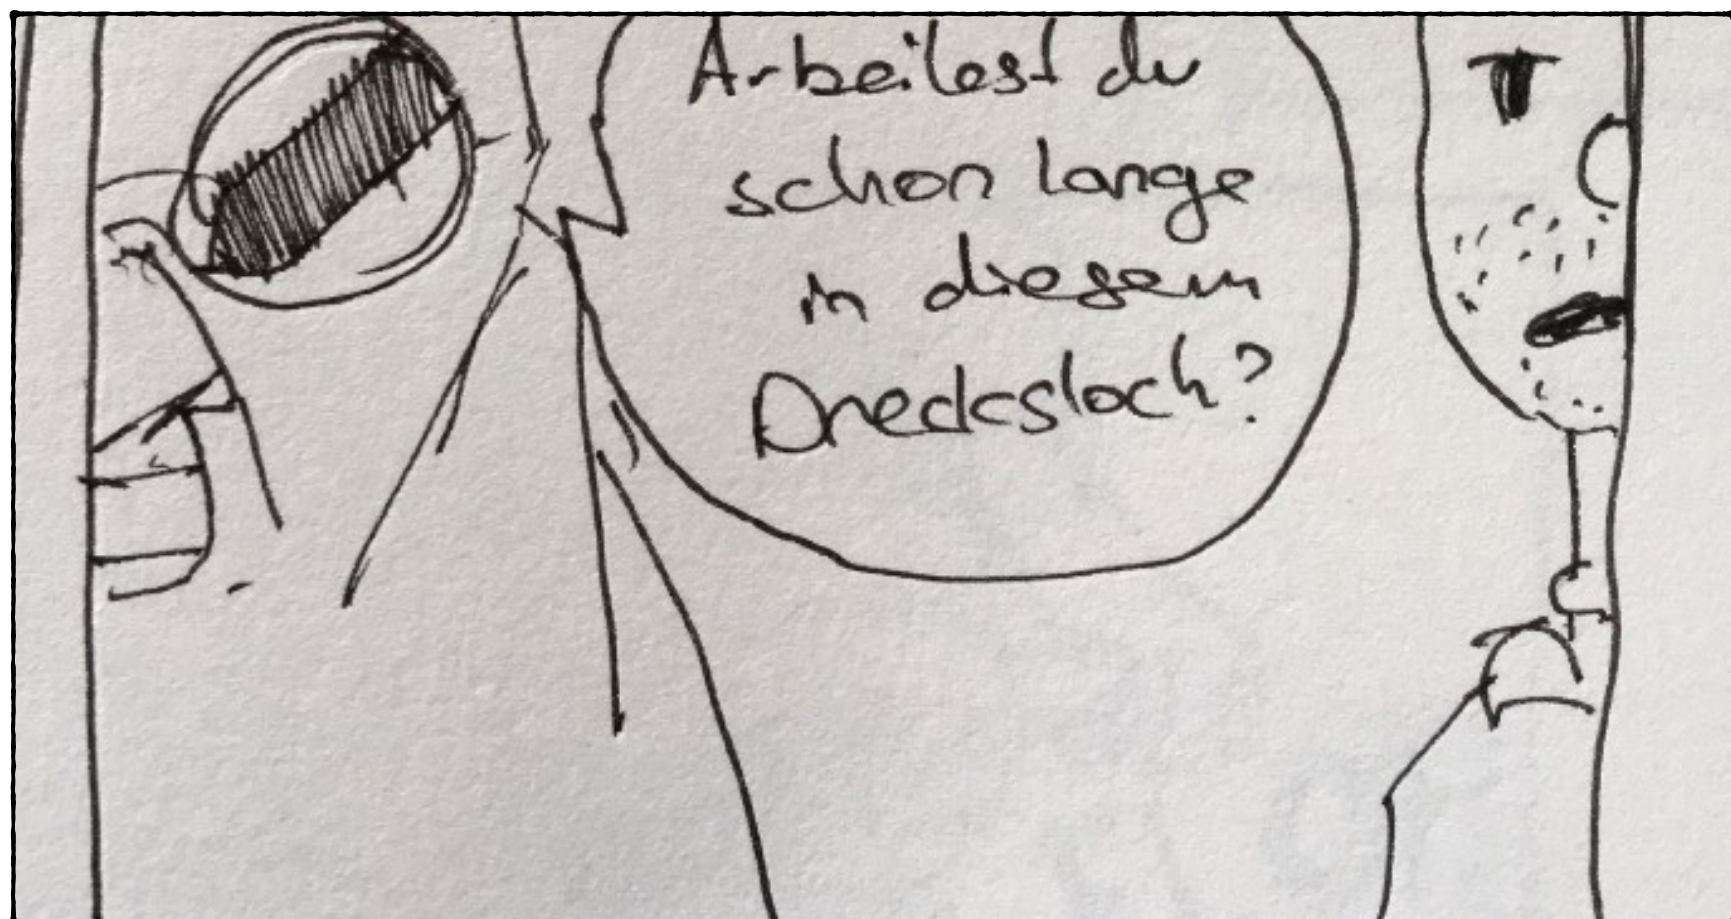 Arbeitest du
schon lange
in diesem
Drecksloch?